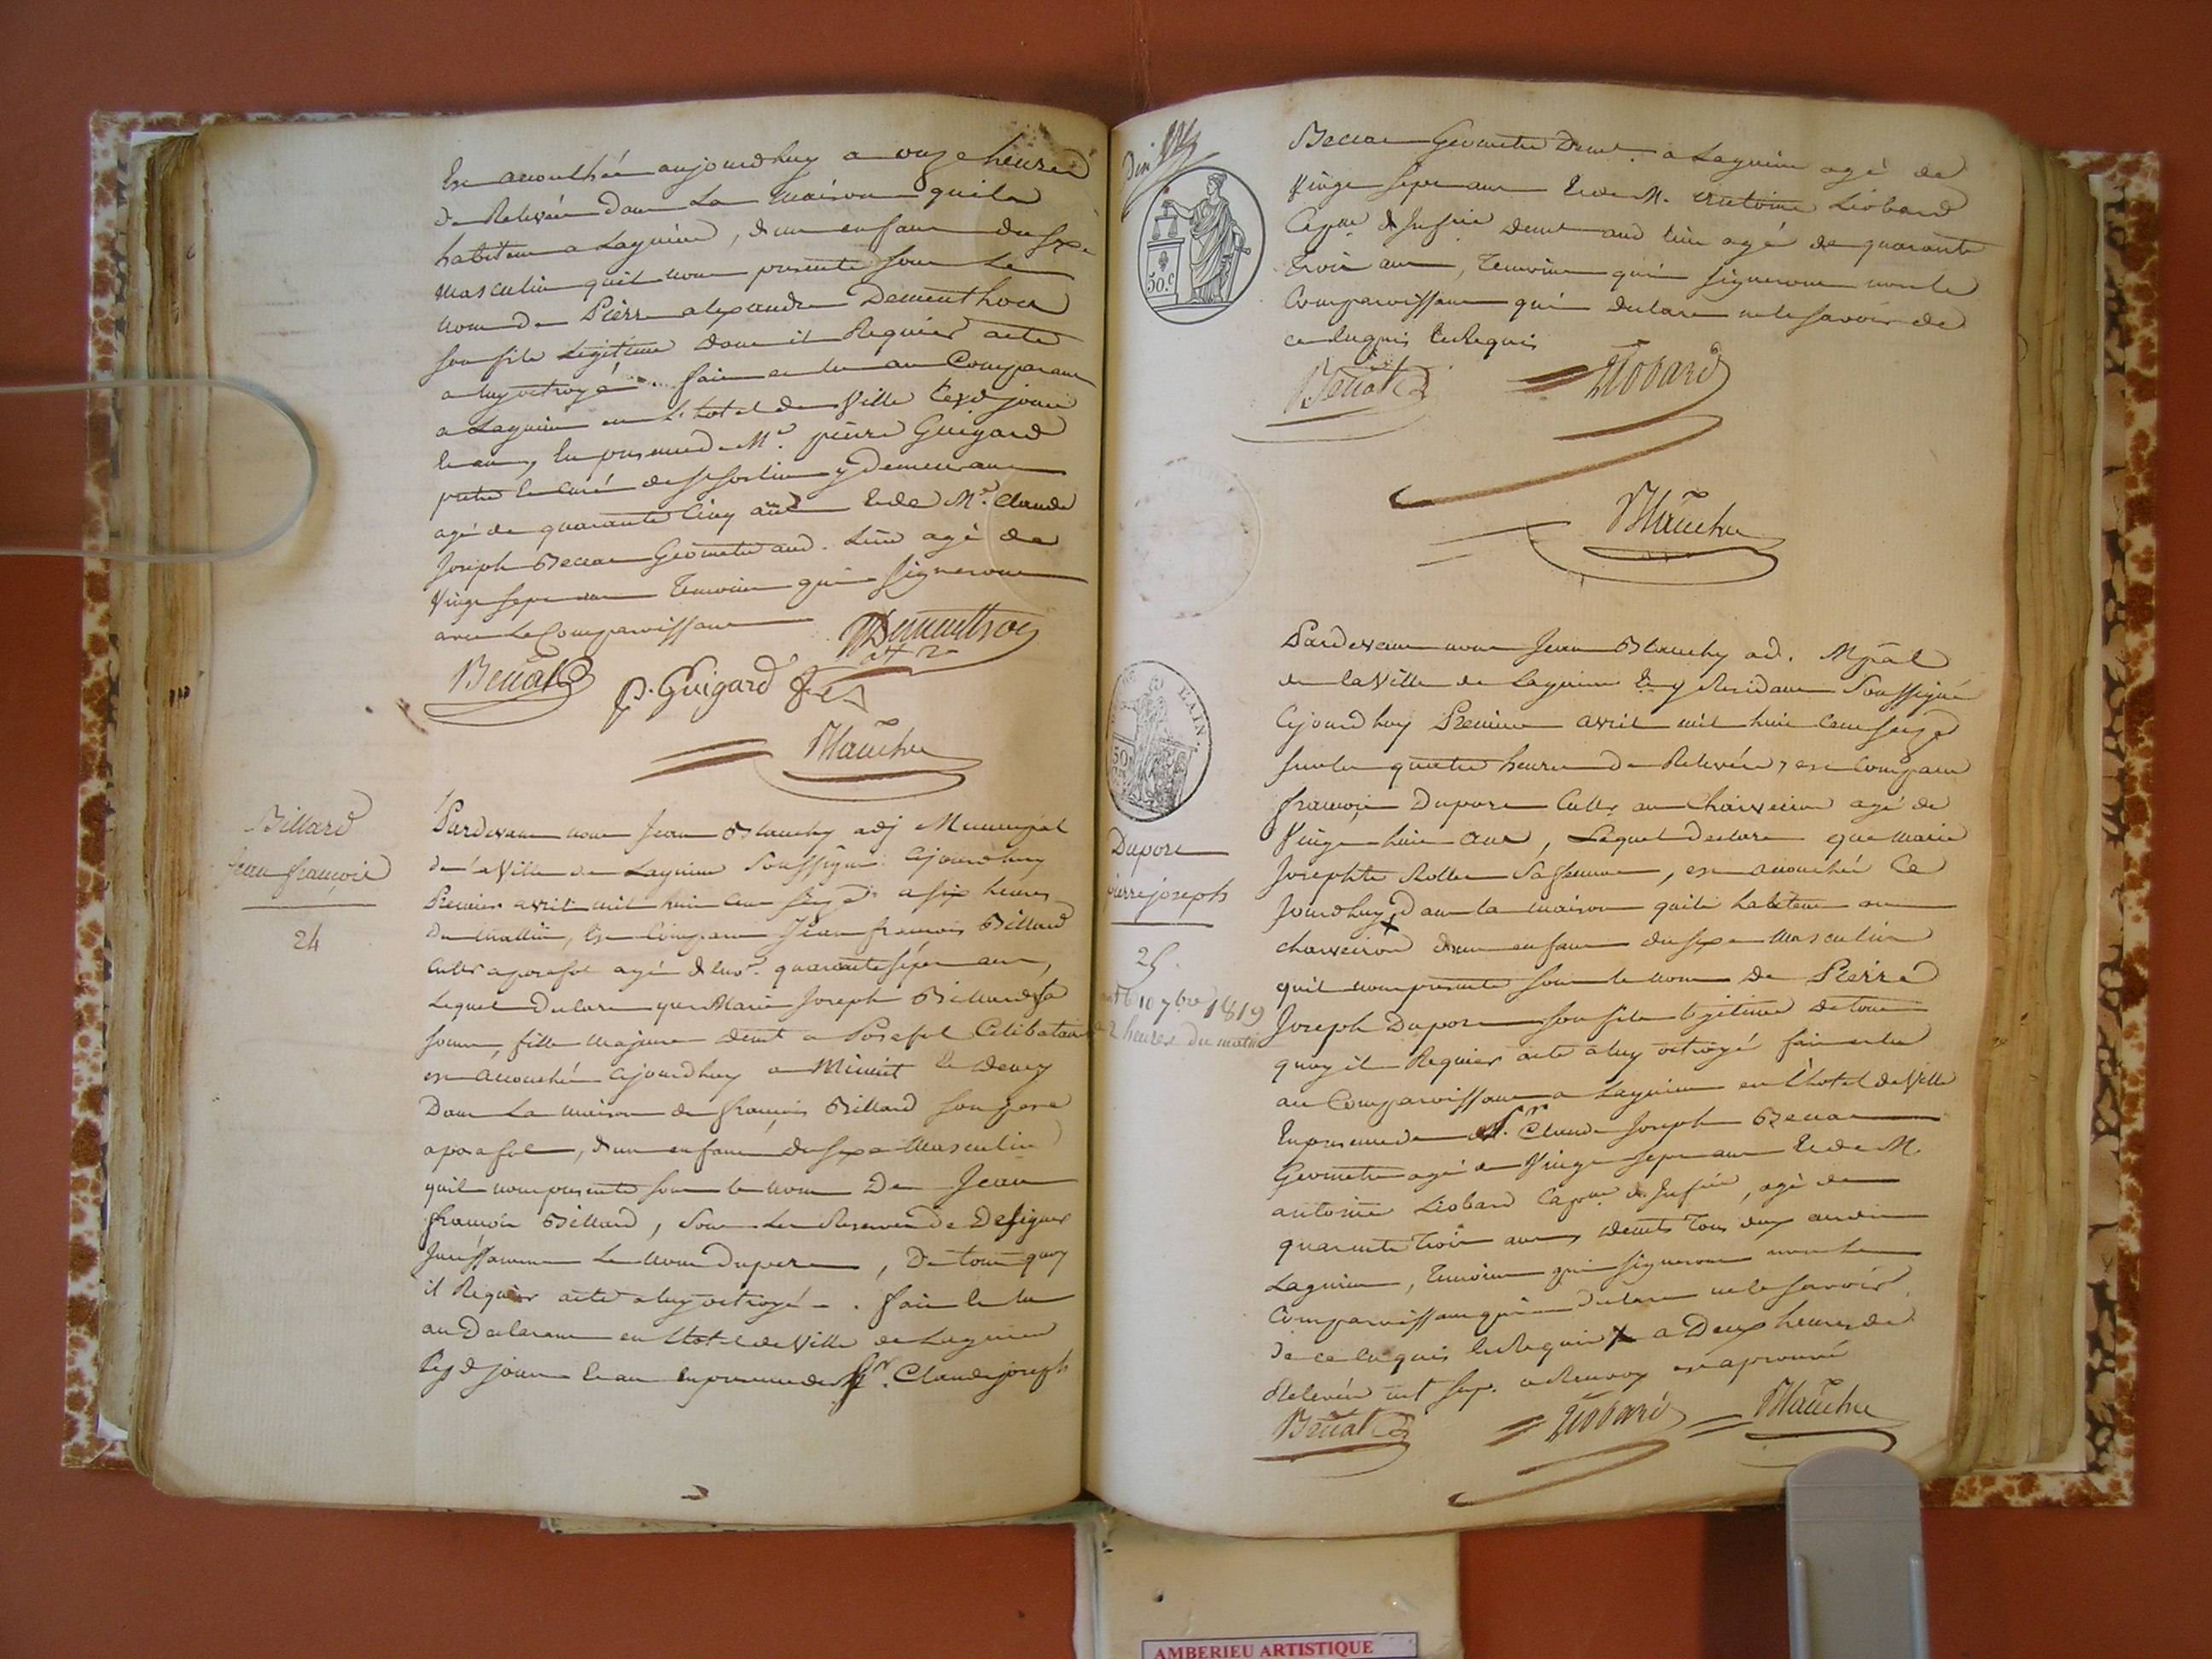 Est accouchée aujourdhuy a onze heures
de Relevée dans La maison quils
habitent a Lagnieu, d'un enfant du sexe
masculin quil nous presente sous Le
nom de Pierre alexandre Dementhon
son fils Legitime dont il Requier acte
a luy octroyé. fait et lu au Comparant
a Lagnieu en L'hotel de Ville lesd jour
et an, En presence de Mr. pierre Guigard
pretre et curé de St Sorlin y Demeurant
agé de quarante Cinq ans Et de Mr. Claude
Joseph Beccat Géometre aud. Lieu agé de
Vingt sept ans Temoins qui signeront
avec Le Comparoissant
Dementhon
Beccat P. Guigard
Blanchy
Billard
Jean françois
24
Pardevant nous Jean Blanchy adj Municipal
de la Ville de Lagnieu Soussigné Cejourdhuy
Premier avril mil huit Cent seize a six heures
Du Mattin, Est Comparu Jean françois Billard
Cultr a posafol agé d'env. quarante sept ans,
Lequel Declare que Marie Joseph Billard Sa
soeur, fille majeure demt a Posafol Celibataire
est accouchée Cejourdhuy a Minuit et demy
Dans La maison de françois Billard son pere
a posafol, d'un enfant du sexe Masculin
quil nous presente sous le nom De Jean
françois Billard, sous La Reserve de Designer
le nom du pere, De tout quoy
il Requier acte a luy octroyé. fait et lu
au Declarant en Lhotel de Ville de Lagnieu
Lesd jour et an en presence de Sr. Claude joseph
50.c
Beccat Géometre Demt. a Lagnieu agé de
Vingt sept ans Et de M. antoine Liobard
Capne d'Infrie demt aud lieu agé de quarante
trois ans, Temoins qui signeront non le
Comparoissant qui declare ne le savoir de
ce Enquis et Requis
Beccat Liobard
Blanchy
AIN.
50
Duport
pierre joseph
25
10 7bre 1819
2 heures du matin
Pardevant nous Jean Blanchy adj. Mpal
de la Ville de Lagnieu Et y Residant Soussigné
Cejourdhuy Premier avril mil huit Cent seize
sur les quatre heures de Relevée, est Comparu
françois Duport Cultr au Charveiron agé de
Vingt huit ans, Lequel declare que marie
Josephte Rollet Sa femme, est accouchée Ce
Jourdhuy X Dans la maison quils habitent au
charveiron d'un enfant du sexe Masculin
quil nous presente sous le nom De Pierre
Joseph Duport son fils legitime De tout
quoy il Requier acte a luy octroyé fait et lu
au Comparoissant a Lagnieu en L'hotel de Ville
En presence de Sr. Claude Joseph Beccat
Geometre agé de Vingt sept ans Et de M.
antoine Liobard Capne d'Infrie, agé de
quarante trois ans, demts Tous deux audit
Lagnieu, Temoins qui signeront non le
Comparoissant qui declare ne le savoir
de ce Enquis et Requis X a Deux heures de
Relevée ut sup. Renvoy est aprouvé
Beccat Liobard Blanchy
AMBERIEU ARTISTIQUE